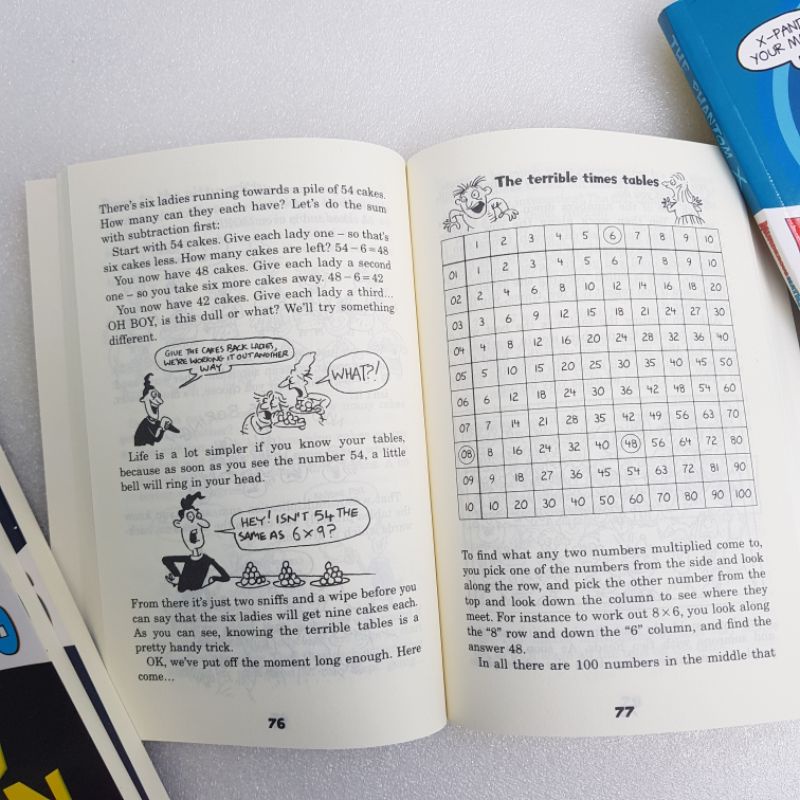 There's six ladies running towards a pile of 54 cakes.
How many can they each have? Let's do the sum
with subtraction first:
Start with 54 cakes. Give each lady one – so that's
six cakes less. How many cakes are left? 54 – 6 = 48
You now have 48 cakes. Give each lady a second
one – so you take six more cakes away. 48 – 6 = 42
You now have 42 cakes. Give each lady a third...
OH BOY, is this dull or what? We'll try something
different.
GIVE THE CAKES BACK LADIES,
WE'RE WORKING IT OUT ANOTHER
WAY
WHAT?!
Life is a lot simpler if you know your tables,
because as soon as you see the number 54, a little
bell will ring in your head.
HEY! ISN'T 54 THE
SAME AS 6 x 9?
From there it's just two sniffs and a wipe before you
can say that the six ladies will get nine cakes each.
As you can see, knowing the terrible tables is a
pretty handy trick.
OK, we've put off the moment long enough. Here
come...
76
The terrible times tables
1 2 3 4 5 6 7 8 9 10
01 1 2 3 4 5 6 7 8 9 10
02 2 4 6 8 10 12 14 16 18 20
03 3 6 9 12 15 18 21 24 27 30
04 4 8 12 16 20 24 28 32 36 40
05 5 10 15 20 25 30 35 40 45 50
06 6 12 18 24 30 36 42 48 54 60
07 7 14 21 28 35 42 49 56 63 70
08 8 16 24 32 40 48 56 64 72 80
09 9 18 27 36 45 54 63 72 81 90
10 10 20 30 40 50 60 70 80 90 100
To find what any two numbers multiplied come to,
you pick one of the numbers from the side and look
along the row, and pick the other number from the
top and look down the column to see where they
meet. For instance to work out 8 × 6, you look along
the "8" row and down the "6" column, and find the
answer 48.
In all there are 100 numbers in the middle that
77
THE PHANTOM X
YOUR